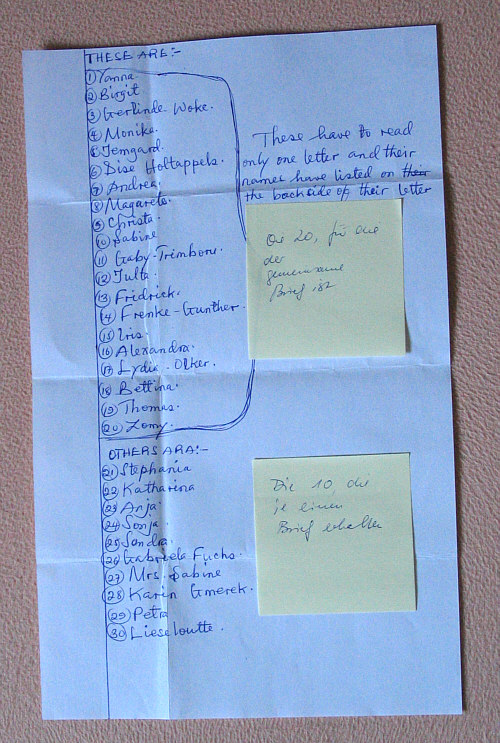 THESE ARE:-
① Yanna
② Birgit
③ Gerlinde. Woke.
④ Monika
⑤ Iemgard.
⑥ Dise Holtappels.
⑦ Andrea.
⑧ Magarete.
⑨ Christa.
⑩ Sabine
⑪ Gaby-Trimborn.
⑫ Julta.
⑬ Fridrick.
⑭ Frenke-Gunther.
⑮ Iris.
⑯ Alexandra.
⑰ Lydia - Olker.
⑱ Bettina.
⑲ Thomas.
⑳ Zomy.
These have to read
only one letter and their
names have listed on their
the backside of their letter
Die 20, für die
der
gemeinsame
Brief ist
OTHERS ARA:-
㉑ Stephania
㉒ Katharina
㉓ Anja
㉔ Sonja.
㉕ Sandra.
㉖ Gabriela Fuchs.
㉗ Mrs. Sabine
㉘ Karin Gmerek.
㉙ Petra
㉚ Lieseloutte.
Die 10, die
je einen
Brief erhalten